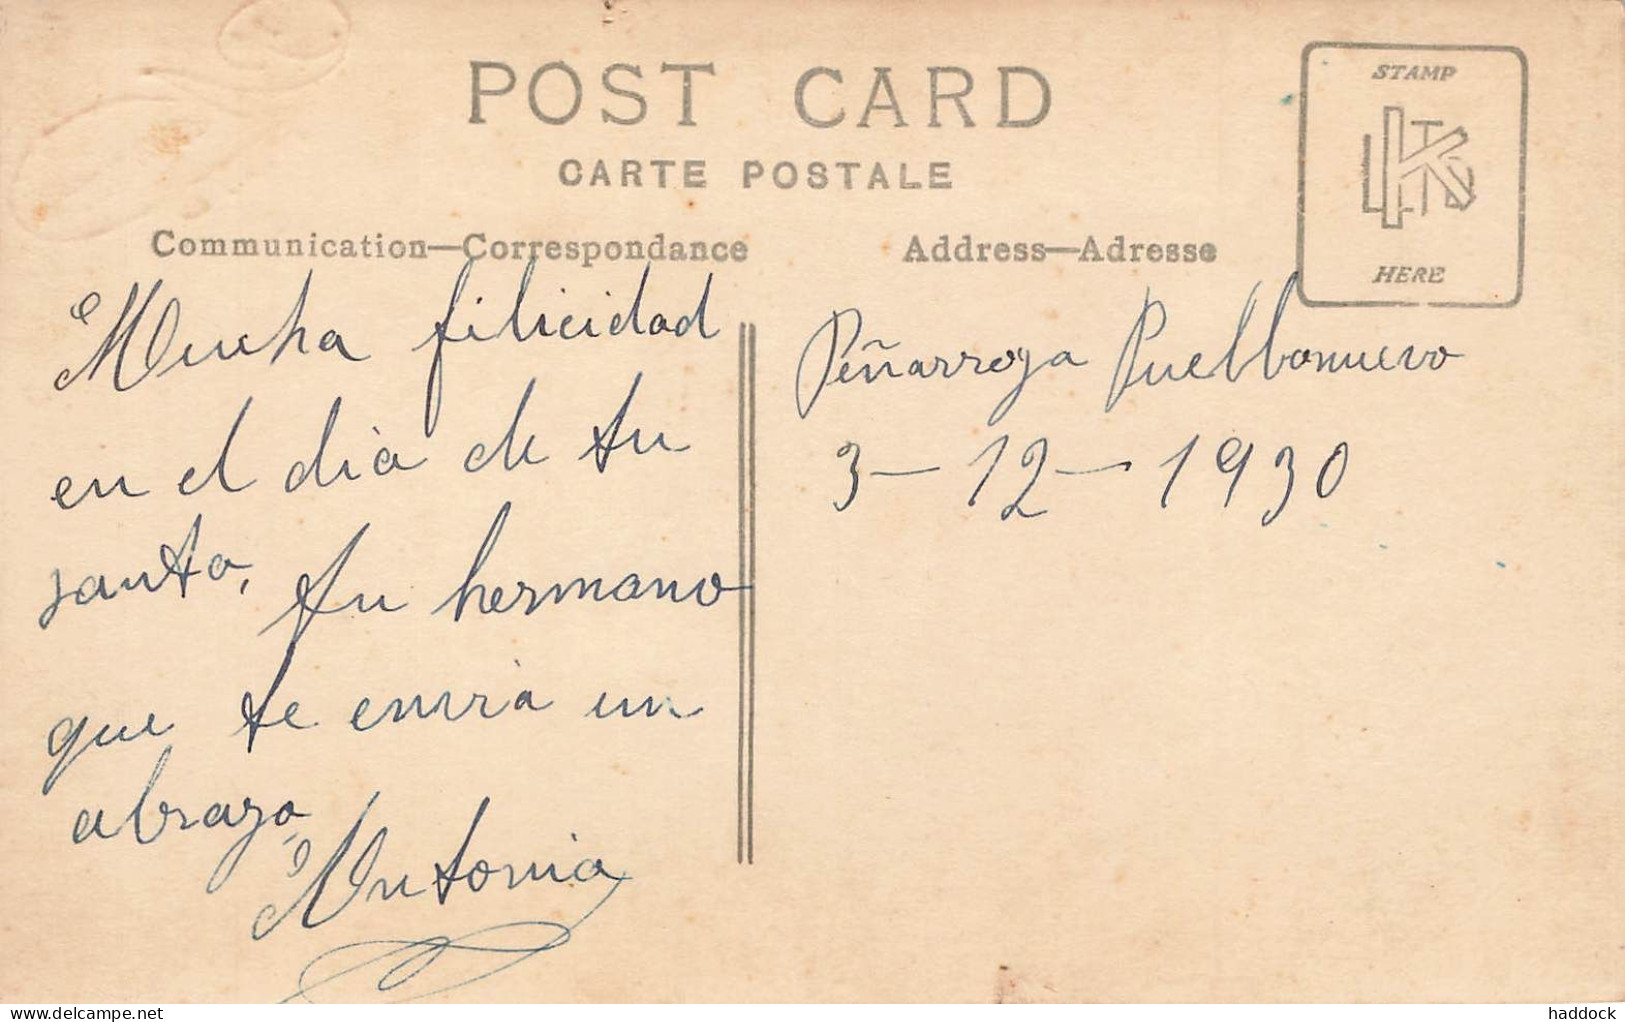 POST CARD
CARTE POSTALE
Communication—Correspondance
Address—Adresse
STAMP
K
HERE
Mucha filicidad
en el dia de tu
santo, tu hermano
que te envia un
abrazo,
Antonia
Peñarroya Puellbonuevo
3-12-1930
delcampe.net
haddock